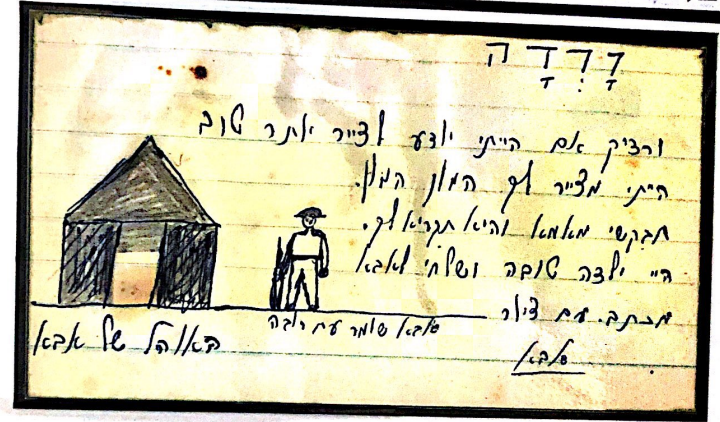 דָרְדָה
ורדיק אם הייתי יודע לצייר יותר טוב
הייתי מצייר לך המון המון.
תבקשי מאמא והיא תקריא לך.
היי ילדה טובה ושלחי לאבא
מכתב עם ציור
אבא
אבא שומר עם רובה
האוהל של אבא